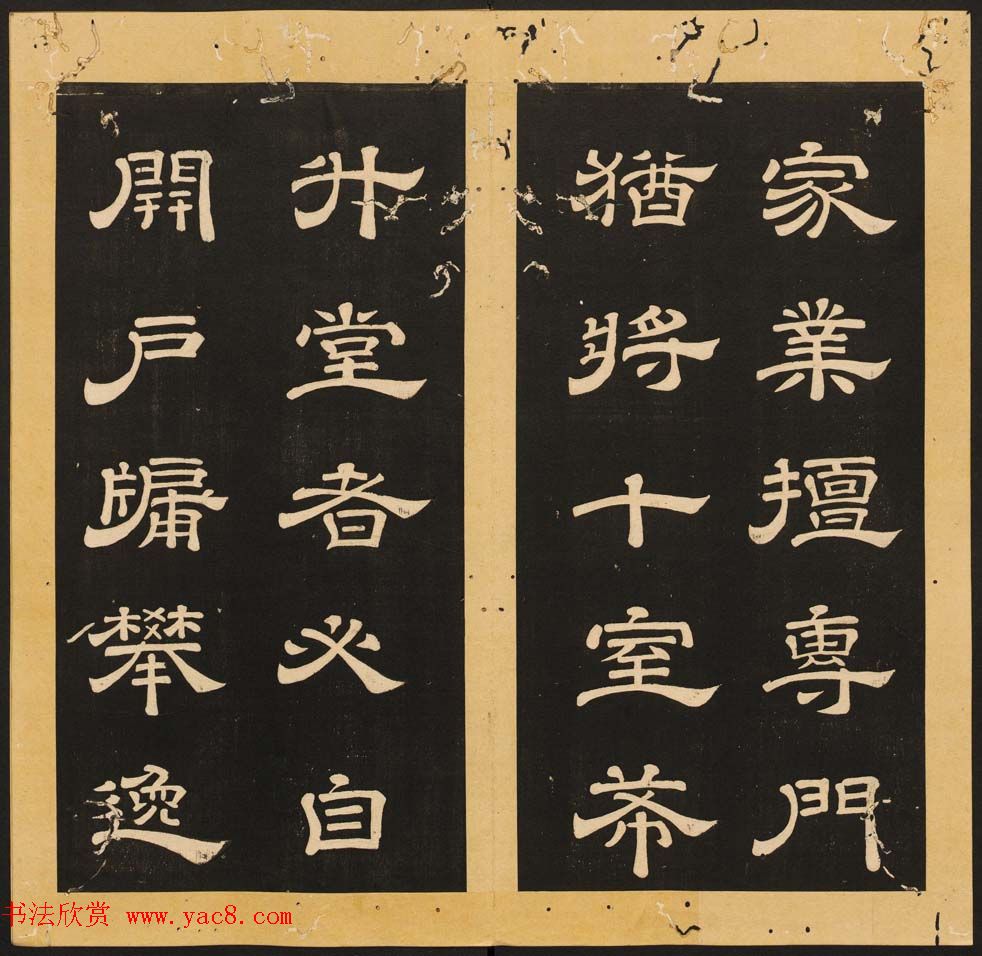 家業擅專門
猶將十室希
升堂者必自
開戸牖攀逸
书法欣赏 www.yac8.com